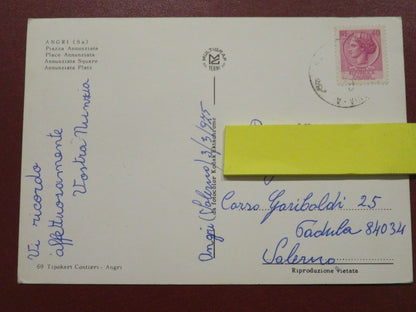 ANGRI (Sa)
Piazza Annunziata
Place Annunziata
Annunziata Square
Annunziata Platz
Vi ricordo
affettuosamente
Vostra Nunzia
Angri (Salerno) 3/3/975
MULTIGRAF
TERNI
da fotocolor Kodak Ektachrome
Corso Garibaldi 25
Padula 84034
Salerno
69 Tipokart Costieri - Angri
Riproduzione Vietata